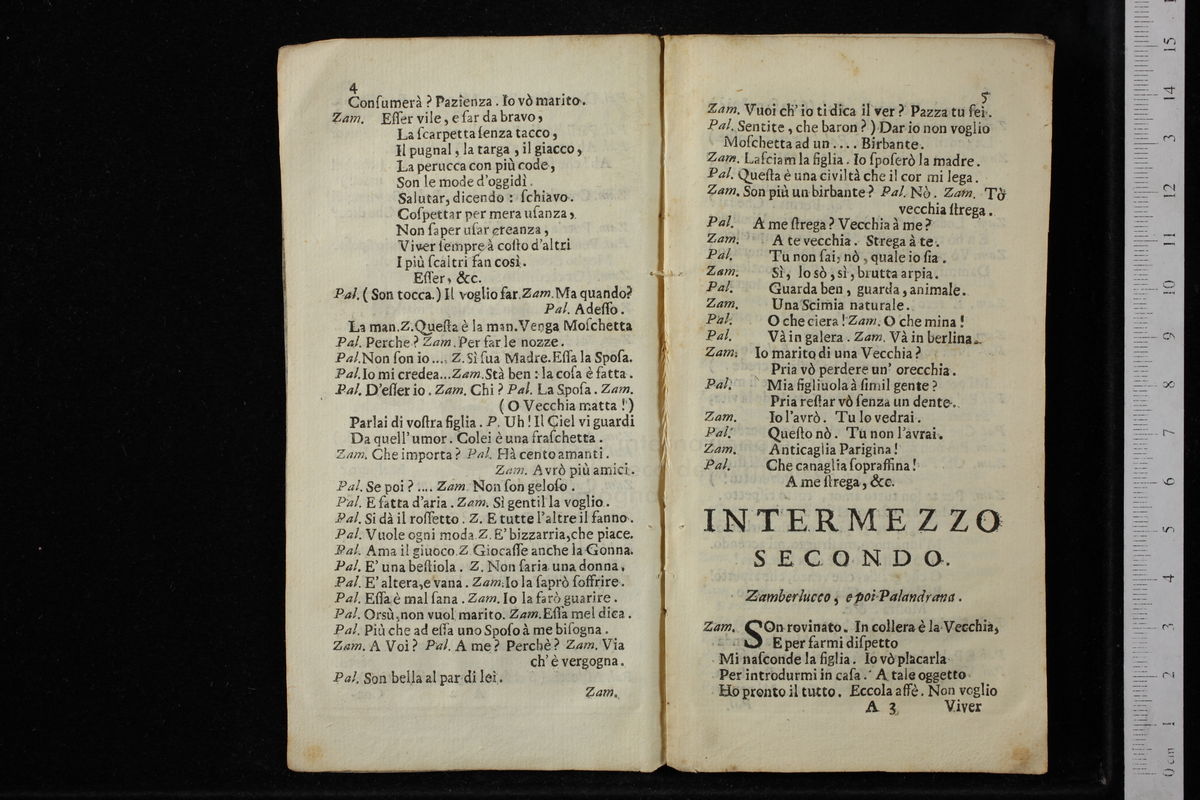 4
Conſumerà ? Pazienza . Io vò marito.
Zam. Eſſer vile, e far da bravo,
La ſcarpetta ſenza tacco,
Il pugnal, la targa, il giacco,
La perucca con più code,
Son le mode d'oggidì.
Salutar, dicendo : ſchiavo.
Coſpettar per mera uſanza,
Non ſaper uſar creanza,
Viver ſempre à coſto d'altri
I più ſcaltri fan così.
Eſſer, &c.
Pal. (Son tocca.) Il voglio far. Zam. Ma quando?
Pal. Adeſſo.
La man. Z. Queſta è la man. Venga Moſchetta
Pal. Perche ? Zam. Per far le nozze.
Pal. Non ſon io .... Z. Sì ſua Madre. Eſſa la Spoſa.
Pal. Io mi credea... Zam. Stà ben : la coſa è fatta.
Pal. D'eſſer io. Zam. Chi ? Pal. La Spoſa. Zam.
( O Vecchia matta ! )
Parlai di voſtra figlia. P. Uh ! Il Ciel vi guardi
Da quell' umor. Colei è una fraſchetta.
Zam. Che importa ? Pal. Hà cento amanti.
Zam. Avrò più amici.
Pal. Se poi ? .... Zam. Non ſon geloſo.
Pal. E fatta d'aria. Zam. Sì gentil la voglio.
Pal. Si dà il roſſetto. Z. E tutte l'altre il fanno.
Pal. Vuole ogni moda. Z. E' bizzarria, che piace.
Pal. Ama il giuoco. Z Giocaſſe anche la Gonna.
Pal. E' una beſtiola. Z. Non ſaria una donna.
Pal. E' altera, e vana. Zam. Io la ſaprò ſoffrire.
Pal. Eſſa è mal ſana. Zam. Io la farò guarire.
Pal. Orsù, non vuol marito. Zam. Eſſa mel dica.
Pal. Più che ad eſſa uno Spoſo à me biſogna.
Zam. A Voi ? Pal. A me ? Perchè ? Zam. Via
ch' è vergogna.
Pal. Son bella al par di lei.
Zam.
5
Zam. Vuoi ch' io ti dica il ver ? Pazza tu ſei.
Pal. Sentite, che baron ? ) Dar io non voglio
Moſchetta ad un .... Birbante.
Zam. Laſciam la figlia. Io ſpoſerò la madre.
Pal. Queſta è una civiltà che il cor mi lega.
Zam. Son più un birbante ? Pal. Nò. Zam. Tò
vecchia ſtrega.
Pal. A me ſtrega ? Vecchia à me ?
Zam. A te vecchia. Strega à te.
Pal. Tu non ſai, nò, quale io ſia.
Zam. Sì, lo sò, sì, brutta arpia.
Pal. Guarda ben, guarda, animale.
Zam. Una Scimia naturale.
Pal. O che ciera ! Zam. O che mina !
Pal. Và in galera. Zam. Và in berlina.
Zam. Io marito di una Vecchia ?
Pria vò perdere un' orecchia.
Pal. Mia figliuola à ſimil gente ?
Pria reſtar vò ſenza un dente.
Zam. Io l'avrò. Tu lo vedrai.
Pal. Queſto nò. Tu non l'avrai.
Zam. Anticaglia Parigina !
Pal. Che canaglia ſopraffina !
A me ſtrega, &c.
INTERMEZZO
SECONDO.
Zamberlucco, e poi Palandrana.
Zam. SOn rovinato. In collera è la Vecchia,
E per farmi diſpetto
Mi naſconde la figlia. Io vò placarla
Per introdurmi in caſa. A tale oggetto
Ho pronto il tutto. Eccola affè. Non voglio
A 3 Viver